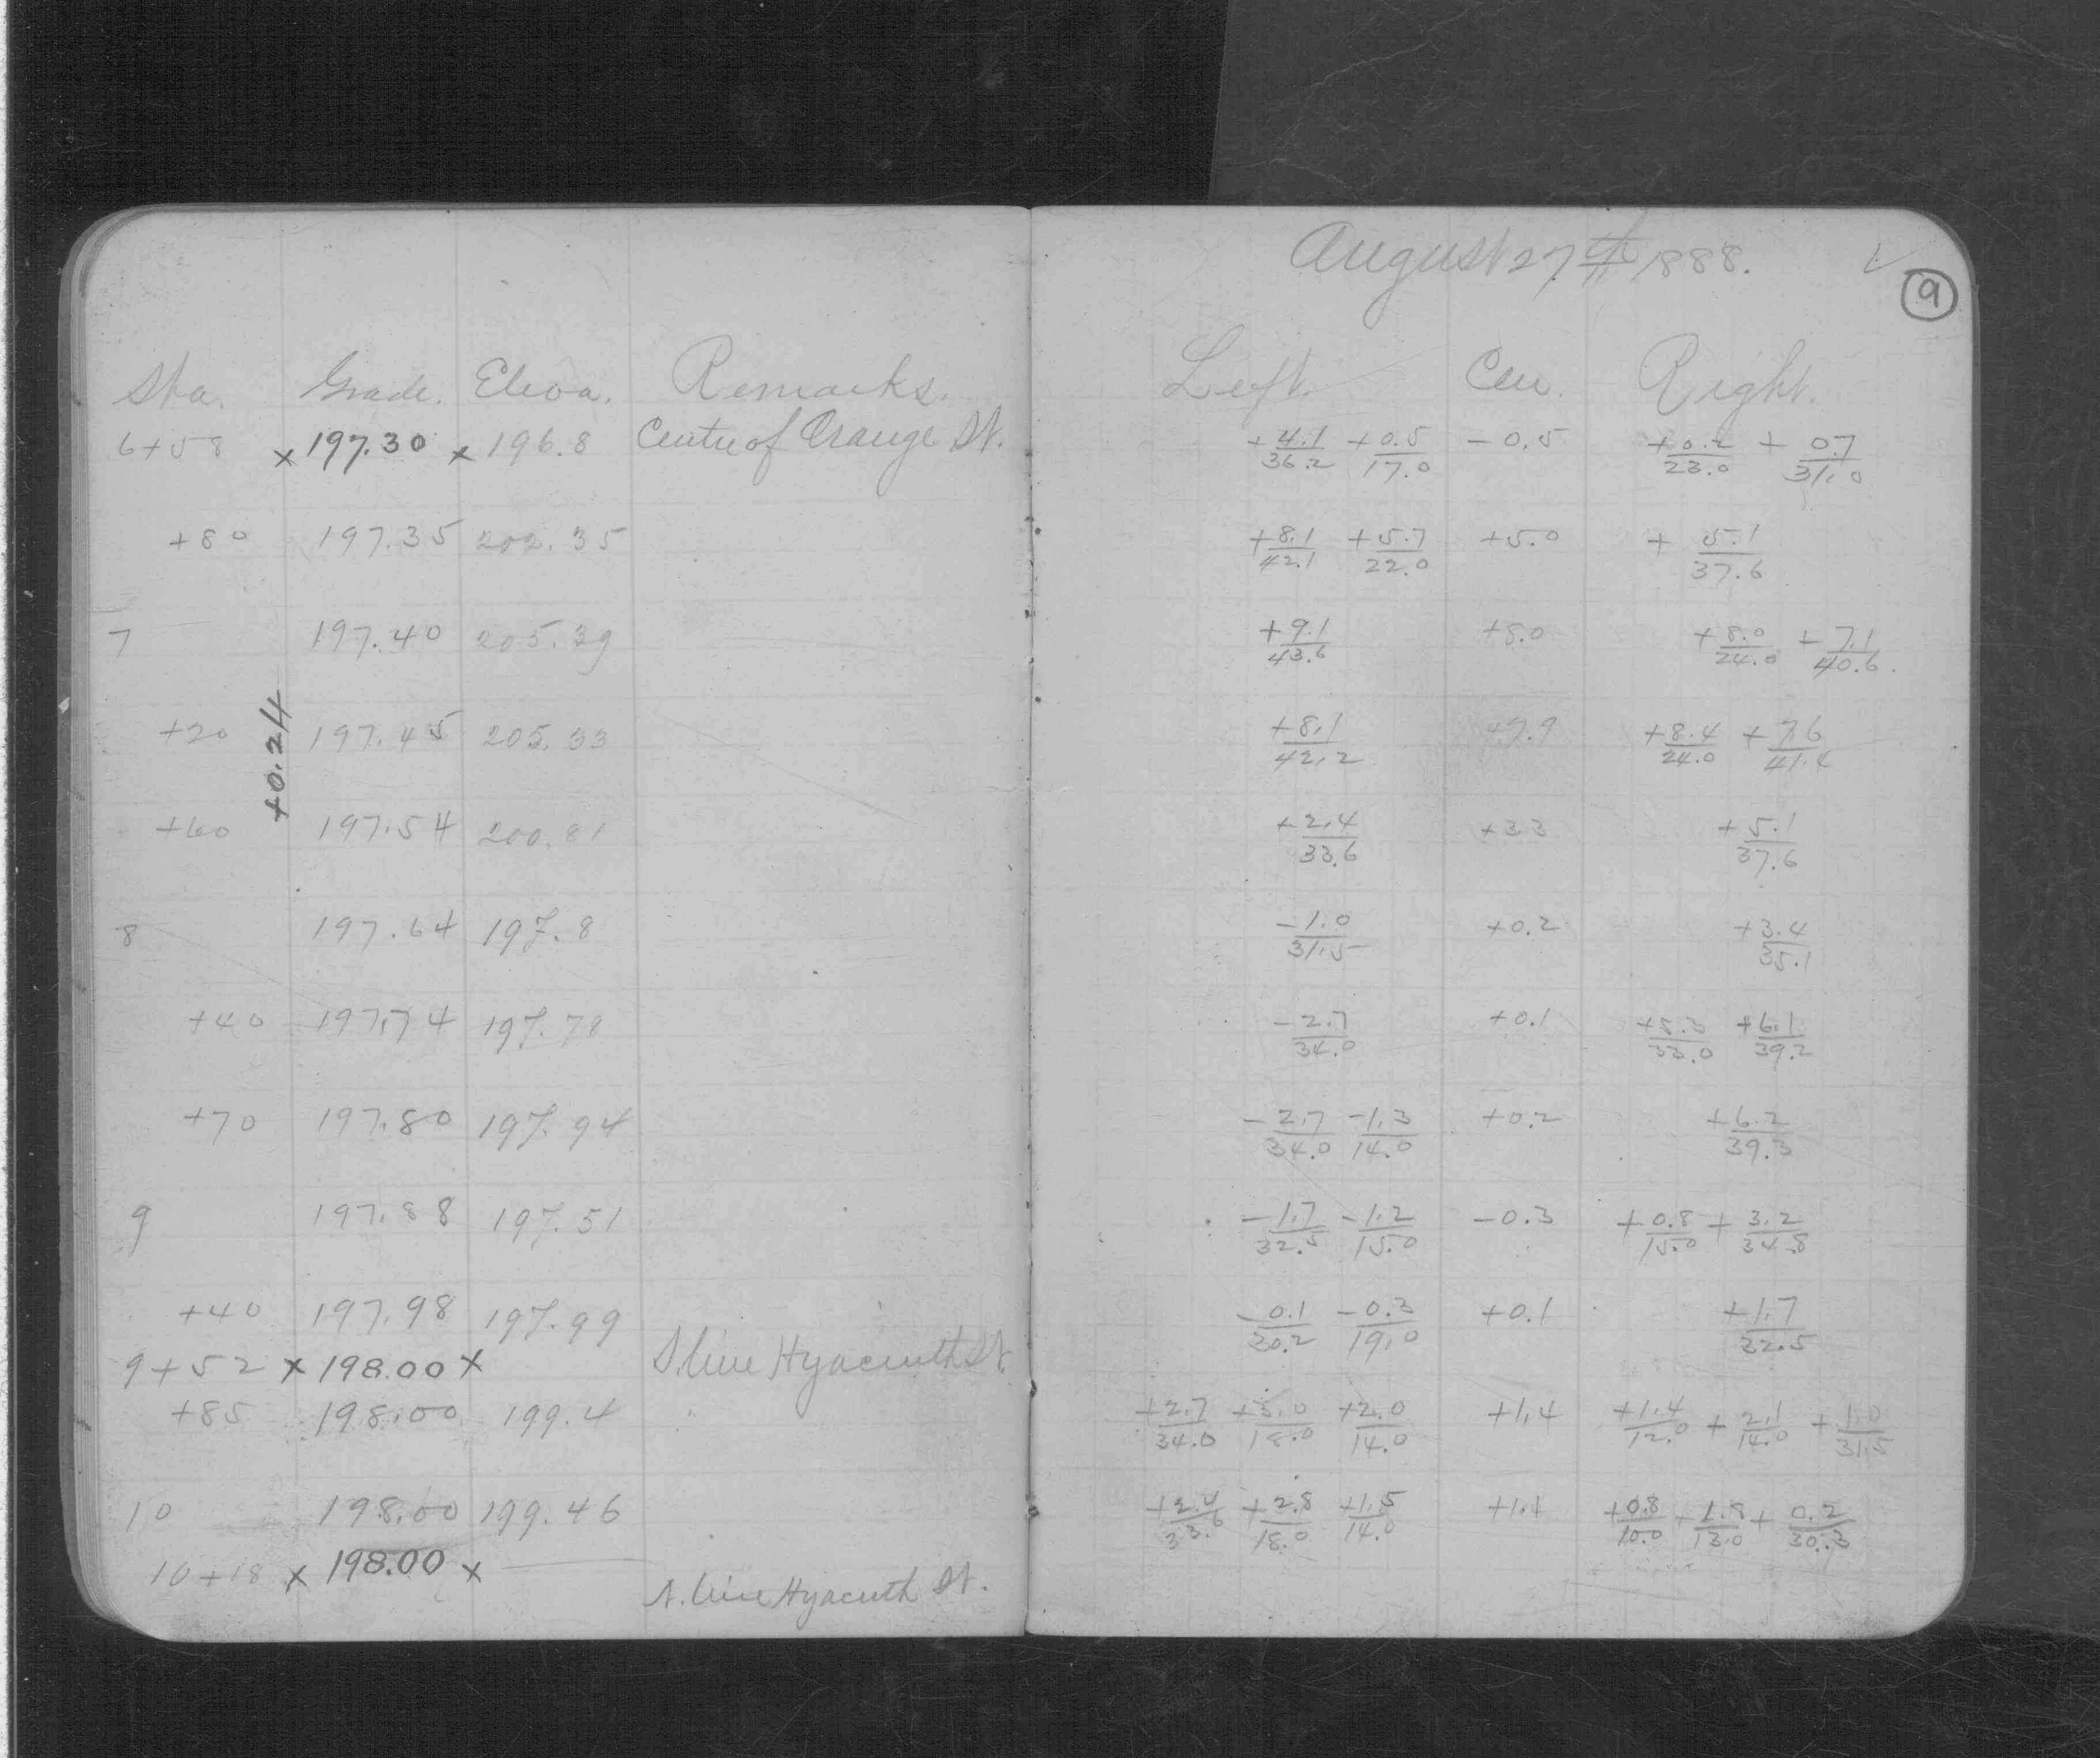 August 27th 1888.
9
Sta. Grade. Eleva. Remarks. Left. Cen. Right.
6+58 x 197.30 x 196.8 Centre of Orange St. +4.1/36.2 +0.5/17.0 -0.5 +0.2/23.0 +0.7/31.0
+80 197.35 202.35 +8.1/42.1 +5.7/22.0 +5.0 +5.1/37.6
7 197.40 205.39 +9.1/43.6 +8.0 +8.0/24.0 +7.1/40.6
+0.24
+20 197.45 205.33 +8.1/42.2 +7.9 +8.4/24.0 +7.6/41.4
+60 197.54 200.81 +2.4/33.6 +3.3 +5.1/37.6
8 197.64 197.8 -1.0/31.5 +0.2 +3.4/35.1
+40 197.74 197.78 -2.7/34.0 +0.1 +5.3/33.0 +6.1/39.2
+70 197.80 197.94 -2.7/34.0 -1.3/14.0 +0.2 +6.2/39.3
9 197.88 197.51 -1.7/32.5 -1.2/15.0 -0.3 +0.8/15.0 +3.2/34.8
+40 197.98 197.99 -0.1/30.2 -0.3/19.0 +0.1 +1.7/32.5
9+52 x 198.00 x S. line Hyacinth St.
+85 198.00 199.4 +2.7/34.0 +3.0/18.0 +2.0/14.0 +1.4 +1.4/12.0 +2.1/14.0 +1.0/31.5
10 198.00 199.46 +2.4/33.6 +2.8/18.0 +1.5/14.0 +1.4 +0.8/10.0 +1.8/13.0 +0.2/30.3
10+18 x 198.00 x N. line Hyacinth St.